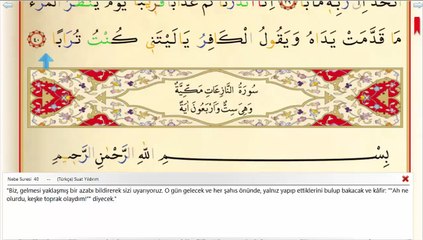 اتَّخَذَ اِلٰى رَبِّهٖ مَاٰبًا اِنَّٓا اَنْذَرْنَاكُمْ عَذَابًا قَرٖيبًا يَوْمَ يَنْظُرُ الْمَرْءُ
مَا قَدَّمَتْ يَدَاهُ وَيَقُولُ الْكَافِرُ يَا لَيْتَنٖى كُنْتُ تُرَابًا ٤٠
سُورَةُ النَّازِعَاتِ مَكِّيَّةٌ
وَهِىَ سِتٌّ وَاَرْبَعُونَ اٰيَةً
بِسْمِ اللّٰهِ الرَّحْمٰنِ الرَّحٖيمِ
Nebe Suresi 40 --- (Türkçe) Suat Yıldırım
"Biz, gelmesi yaklaşmış bir azabı bildirerek sizi uyarıyoruz. O gün gelecek ve her şahıs önünde, yalnız yapıp ettiklerini bulup bakacak ve kâfir: ""Ah ne
olurdu, keşke toprak olaydım!"" diyecek."